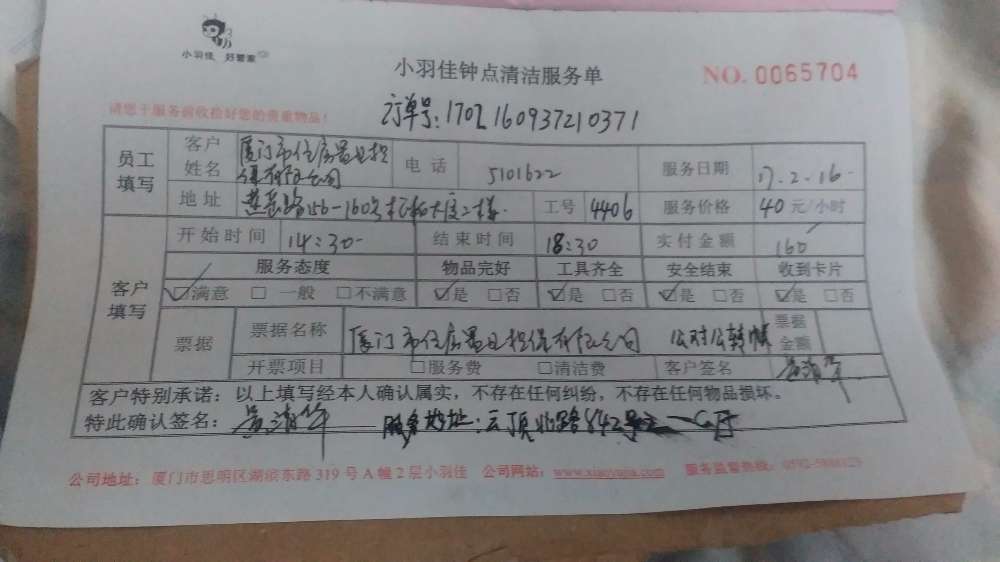 小羽佳 好管家
小羽佳钟点清洁服务单
NO. 0065704
请您于服务前收拾好您的贵重物品!
订单号: 1702160937210371
员工填写 客户姓名 厦门市住房置业担保有限公司 电话 5101622 服务日期 17.2.16.
地址 慈善路156-160号 大厦二楼 工号 4406 服务价格 40元/小时
客户填写 开始时间 14:30 结束时间 18:30 实付金额 160
服务态度 物品完好 工具齐全 安全结束 收到卡片
☑满意 □一般 □不满意 ☑是 □否 ☑是 □否 ☑是 □否 ☑是 □否
票据 票据名称 厦门市住房置业担保有限公司 公对公转帐 票据金额
开票项目 □服务费 □清洁费 客户签名
客户特别承诺: 以上填写经本人确认属实,不存在任何纠纷,不存在任何物品损坏。
特此确认签名: 服务地址: 云顶北路842号
公司地址: 厦门市思明区湖滨东路319号A幢2层小羽佳 公司网站: www.xiaoyujia.com 服务监督热线: